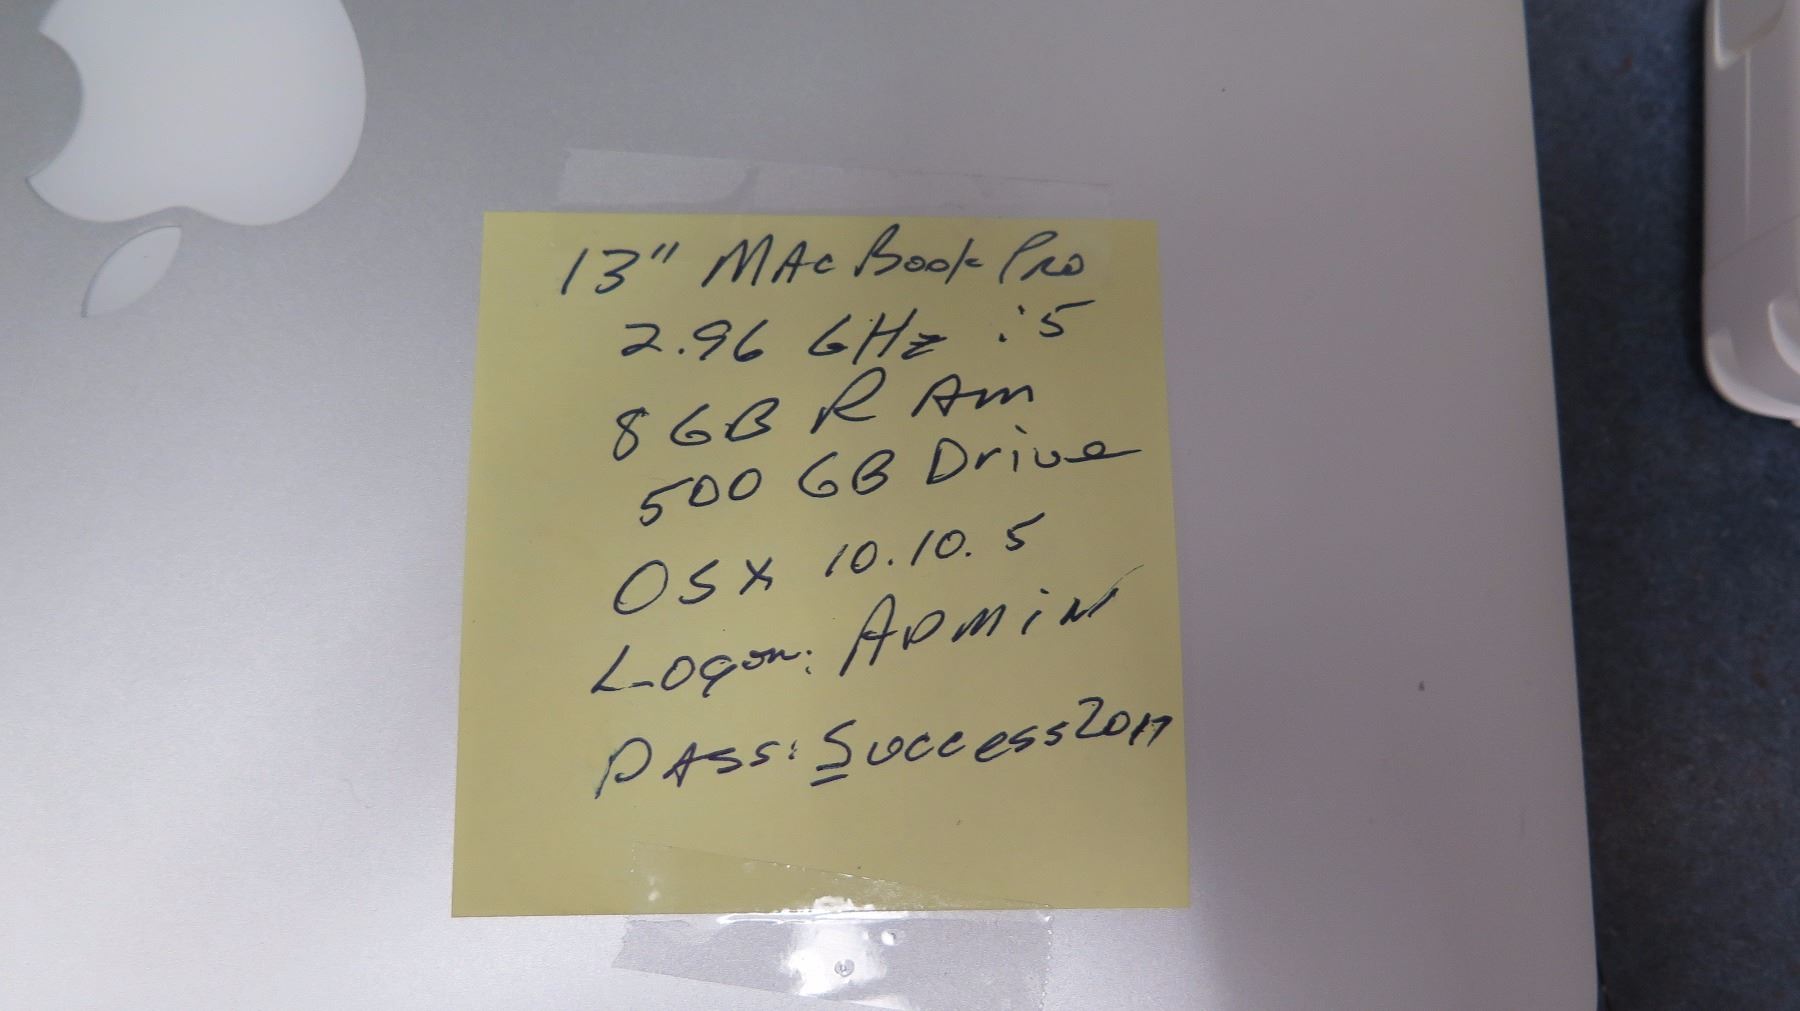 13" MacBook Pro
2.96 GHz i5
8 GB RAM
500 GB Drive
OSX 10.10.5
Logon: ADMiN
PASS: Success2017